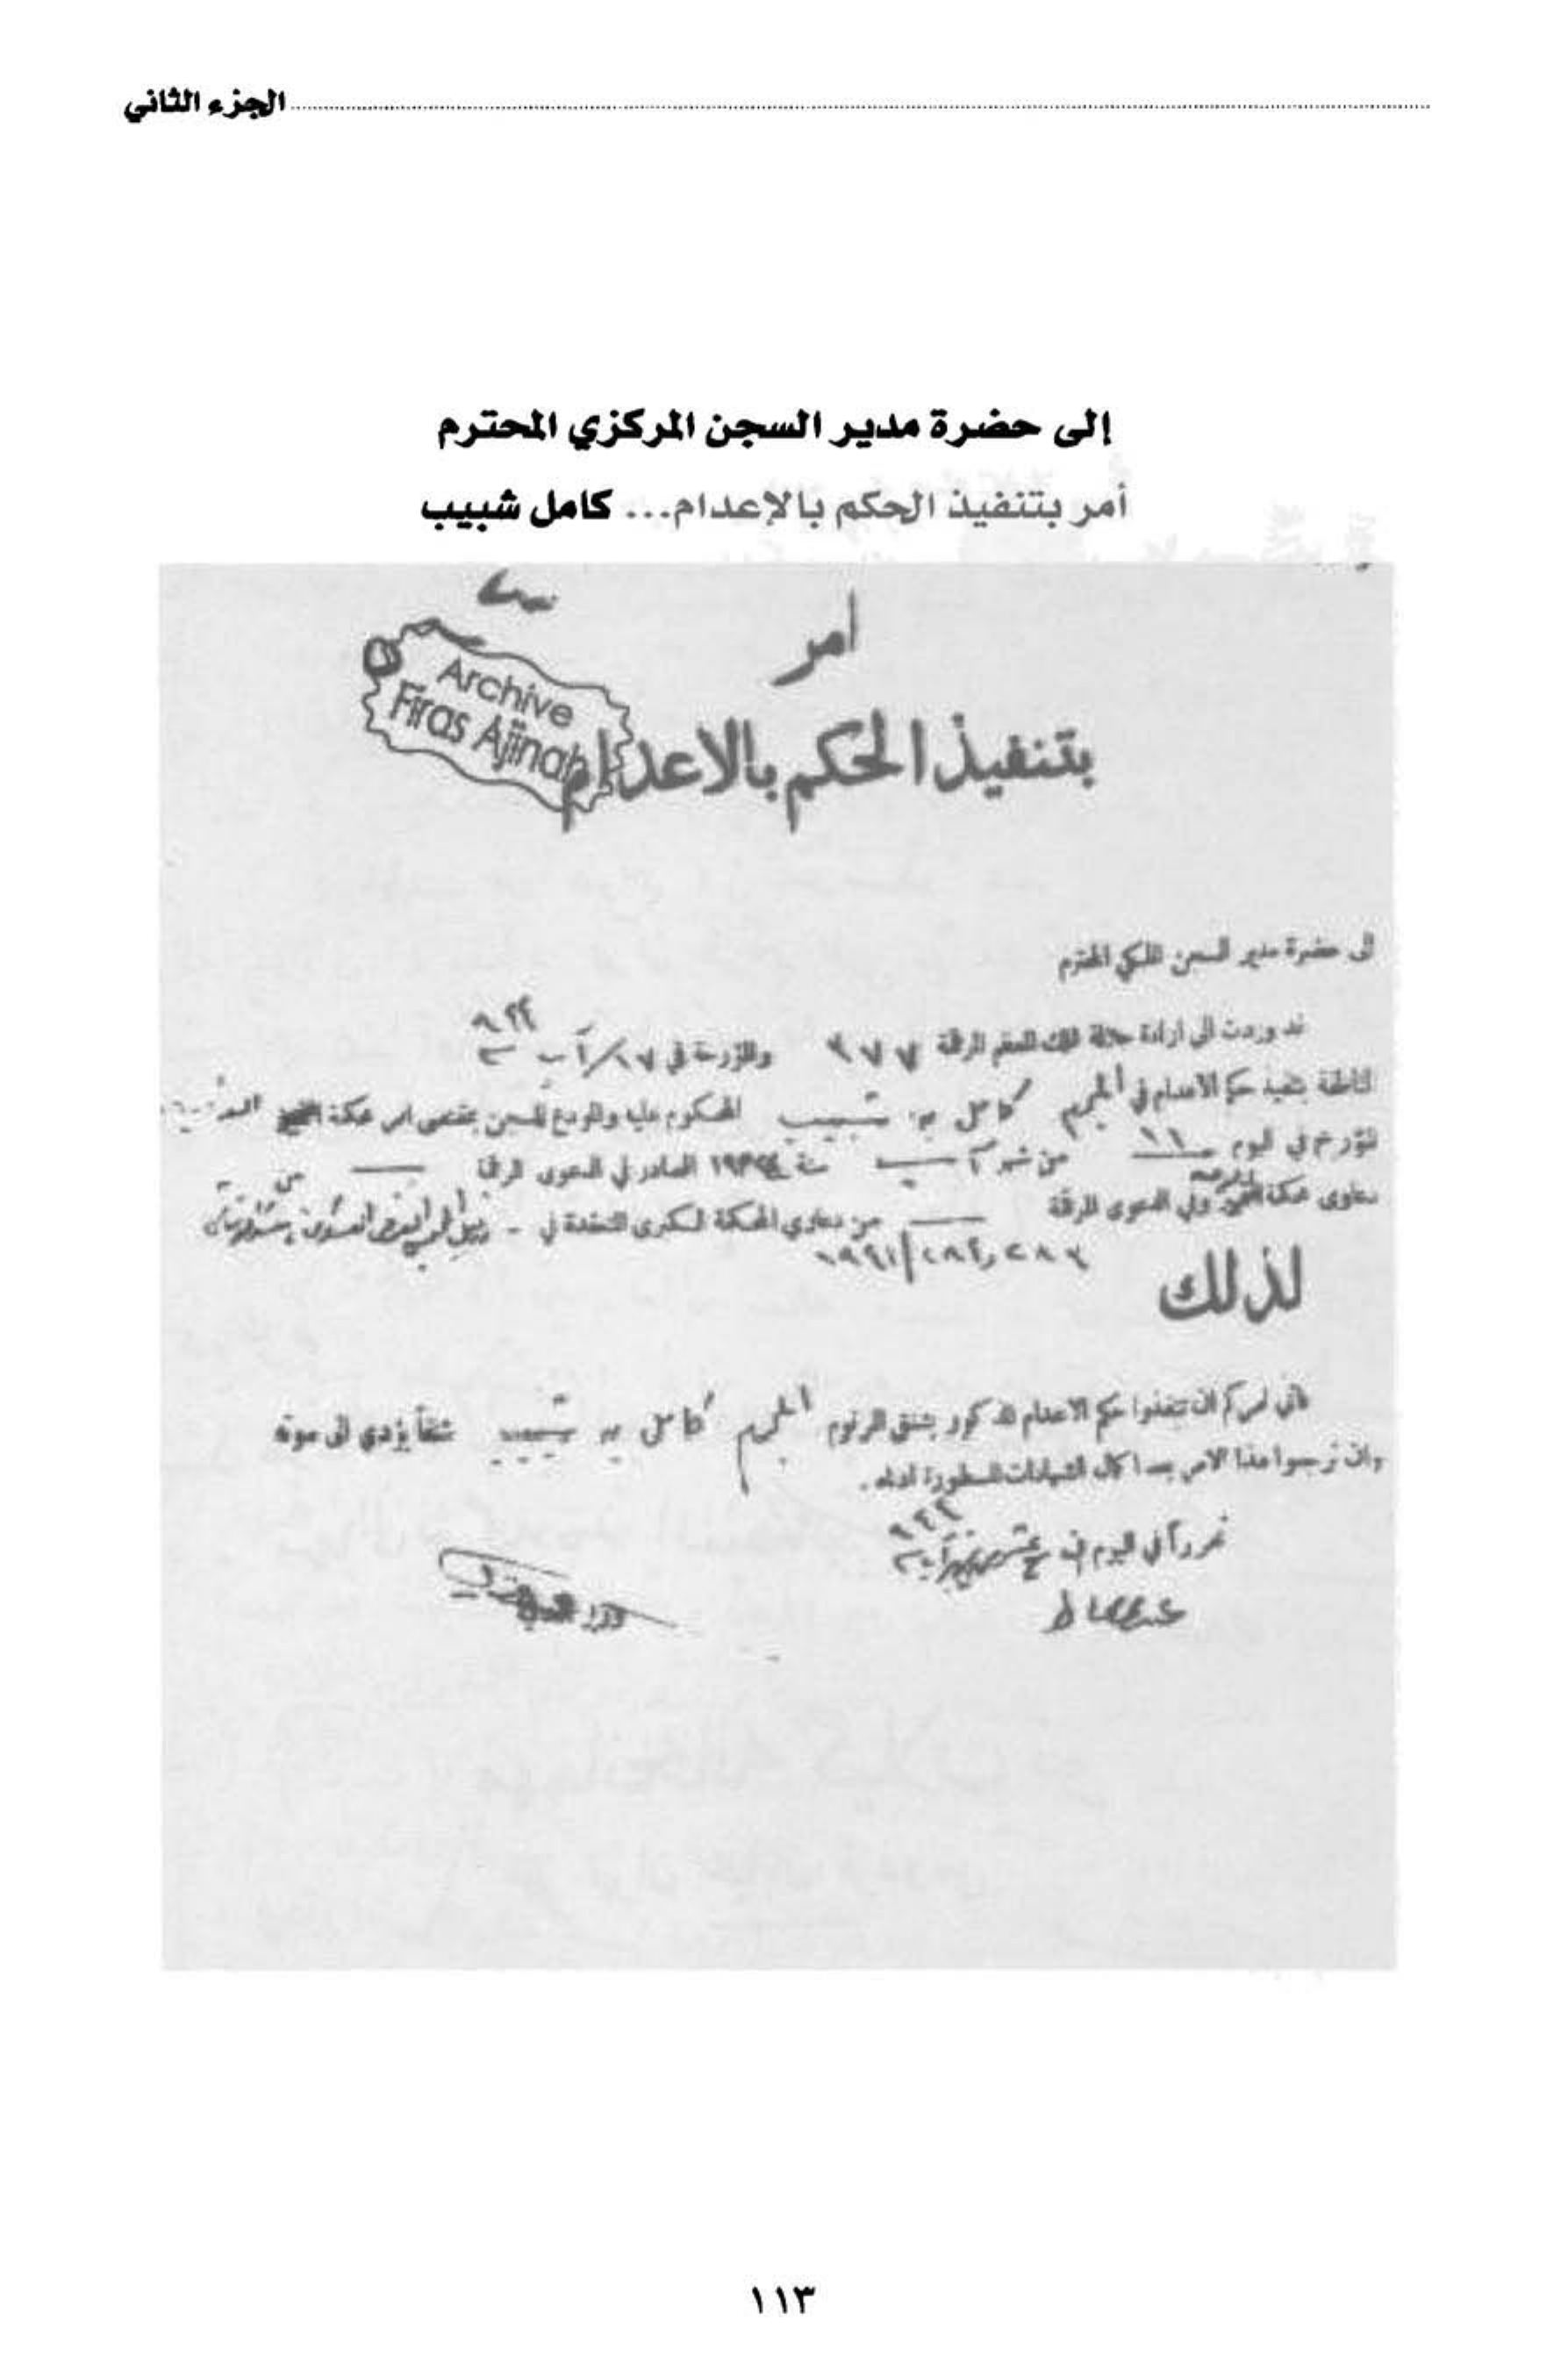 الجزء الثاني
إلى حضرة مدير السجن المركزي المحترم
أمر بتنفيذ الحكم بالإعدام... كامل شبيب
امر
Archive
Firas Ajinah
بتنفيذ الحكم بالاعدام
الى حضرة مدير السجن الملكي المحترم
قد وردت الي ارادة جلالة الملك المعظم المرقمة ٣٧٧ والمؤرخة في ١٧/آب
بتنفيذ حكم الاعدام في المجرم كامل شبيب المحكوم عليه والمودع للسجن بمقتضى امر محكمة
المؤرخ في اليوم ١٦ من شهر آب سنة الصادر في الدعوى المرقمة — من
دعاوى محكمة وفي الدعوى المرقمة — من دعاوي المحكمة الكبرى المنعقدة في -
لذلك
فاني آمركم ان تنفذوا حكم الاعدام المذكور بشنق المرقوم المجرم كامل شبيب شنقاً يؤدي الى موته
وان ترجعوا هذا الامر بعد اكمال الشهادات المسطورة ادناه.
تحريراً في اليوم
١١٣